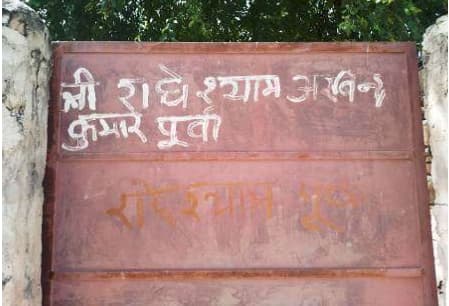 श्री राधे श्याम अरविन्द
कुमार पूर्वा
राधेश्याम